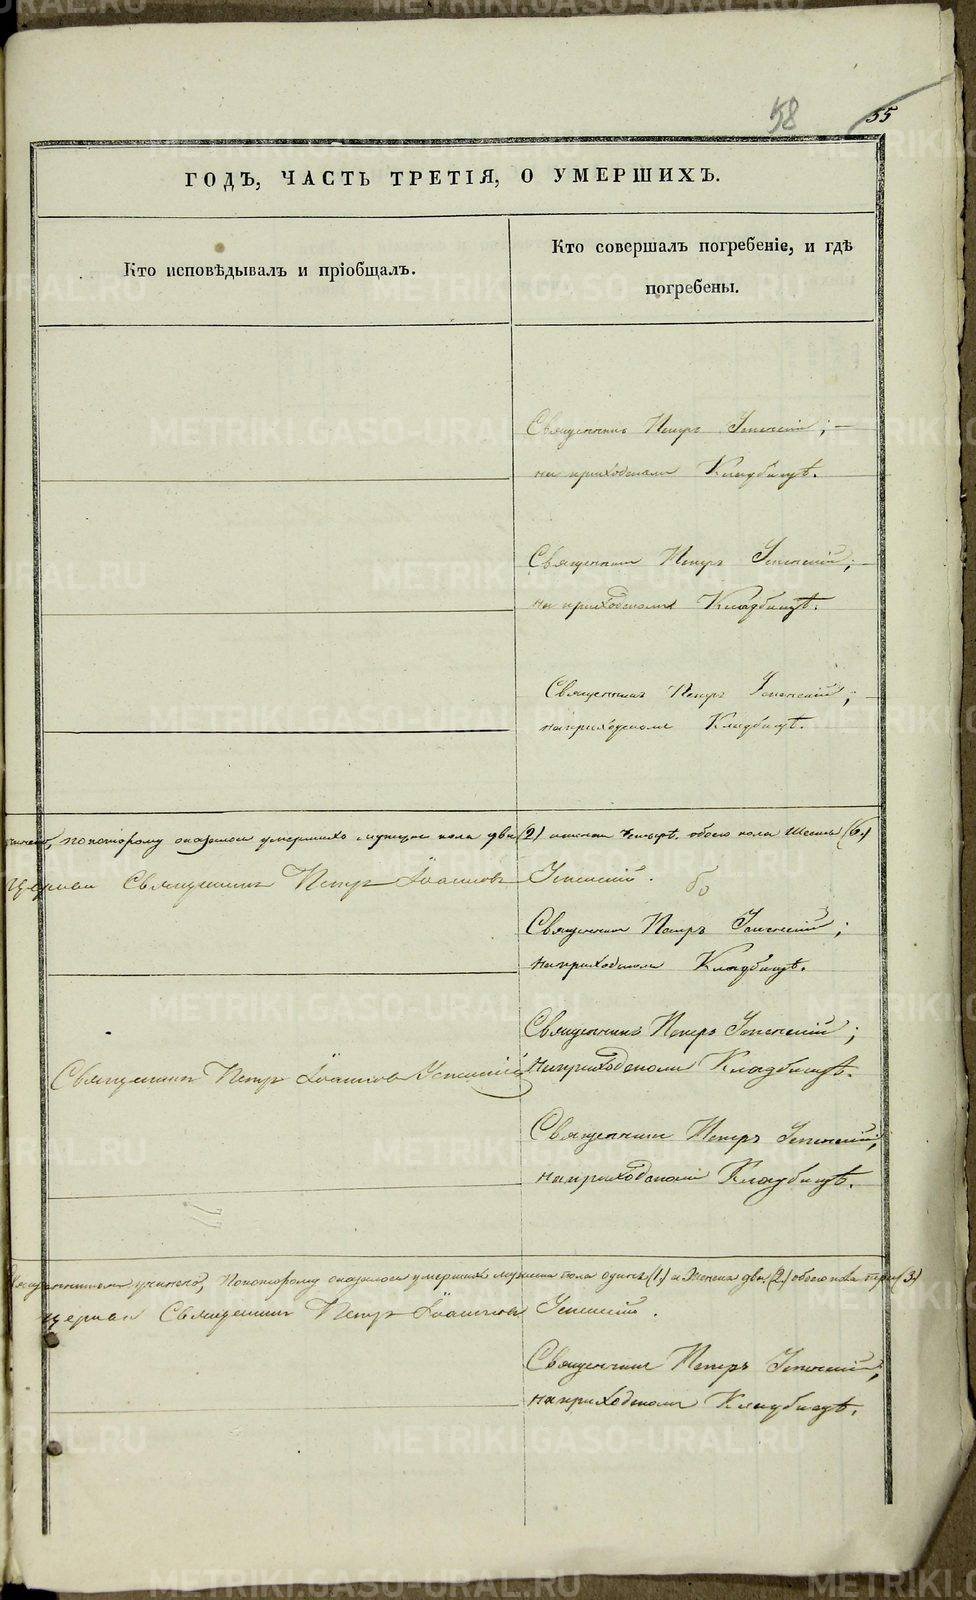 58
55
ГОДЪ, ЧАСТЬ ТРЕТІЯ, О УМЕРШИХЪ.
Кто исповѣдывалъ и пріобщалъ.
Кто совершалъ погребеніе, и гдѣ
погребены.
Священникъ Петръ Успенскій; —
на приходскомъ Кладбищѣ.
Священникъ Петръ Успенскій;
на приходскомъ Кладбищѣ.
Священникъ Петръ Успенскій;
на приходскомъ Кладбищѣ.
по которому оказалось умершихъ мужеска пола два (2) женска четыре, обоего пола Шесть (6.)
Церкви Священникъ Петръ Іоанновъ Успенскій.
Священникъ Петръ Успенскій;
на приходскомъ Кладбищѣ.
Священникъ Петръ Іоанновъ Успенскій
Священникъ Петръ Успенскій;
на приходскомъ Кладбищѣ.
Священникъ Петръ Успенскій;
на приходскомъ Кладбищѣ.
учиненъ, по которому оказалось умершихъ мужеска пола одинъ (1.) а Женска два (2) обоего пола три (3.)
церкви Священникъ Петръ Іоанновъ Успенскій.
Священникъ Петръ Успенскій;
на приходскомъ Кладбищѣ.
METRIKI.GASO-URAL.RU